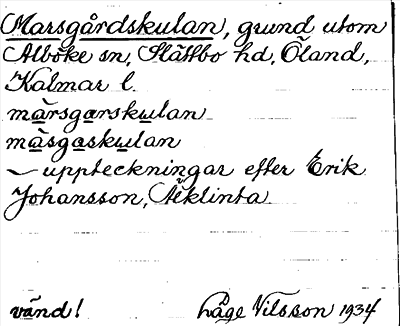 Marsgårdskulan, grund utom
Alböke sn, Slättbo hd, Öland,
Kalmar l.
màrsgarskulan
màsgaskulan
~ uppteckningar efter Erik
Johansson, Äklinta
vänd! Låge Nilsson 1934